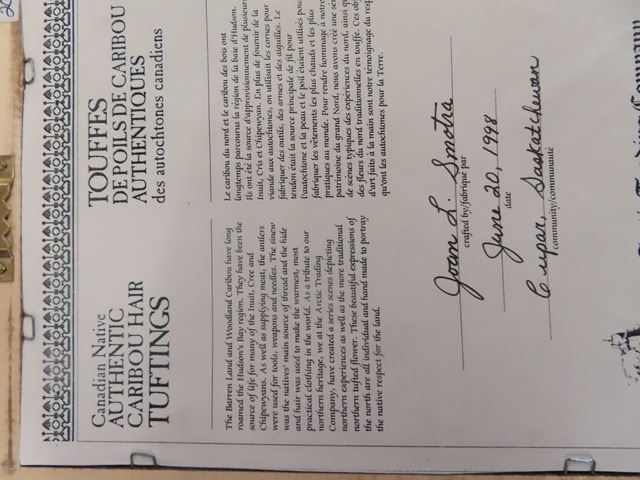 Canadian Native
AUTHENTIC
CARIBOU HAIR
TUFTINGS
The Barren Land and Woodland Caribou have long
roamed the Hudson's Bay region. They have been the
source of life for many of the Inuit, Cree and
Chipewyans. As well as supplying meat, the antlers
were used for tools, weapons and needles. The sinew
was the natives' main source of thread and the hide
and hair was used to make the warmest, most
practical clothing in the world. As a tribute to our
northern heritage, we at the Arctic Trading
Company, have created a series scenes depicting
northern experiences as well as the more traditional
northern tufted flower. These beautiful expressions of
the north are all individual and hand made to portray
the native respect for the land.
TOUFFES
DE POILS DE CARIBOU
AUTHENTIQUES
des autochtones canadiens
Le caribou du nord et le caribou des bois ont
longtemps parcourus la région de la baie d'Hudson.
Ils ont été la source d'approvisionnement de plusieurs
Inuit, Cris et Chipewyan. En plus de fournir de la
viande aux autochtones, on utilisait les cornes pour
fabriquer des outils, des armes et des aiguilles. Le
tendon était la source principale de fil pour
l'autochtone et la peau et le poil étaient utilisés pour
fabriquer les vêtements les plus chauds et les plus
pratiques au monde. Pour rendre hommage à notre
patrimoine du grand Nord, nous avons créé une
de scènes typiques des expériences du nord, ainsi
des fleurs du nord traditionnelles en touffe. Ces
d'art faits à la main sont notre témoignage du
qu'ont les autochtones pour la Terre.
Joan L. Smotra
crafted by/fabriqué par
June 20, 1998
date
Cupar, Saskatchewan
community/communauté